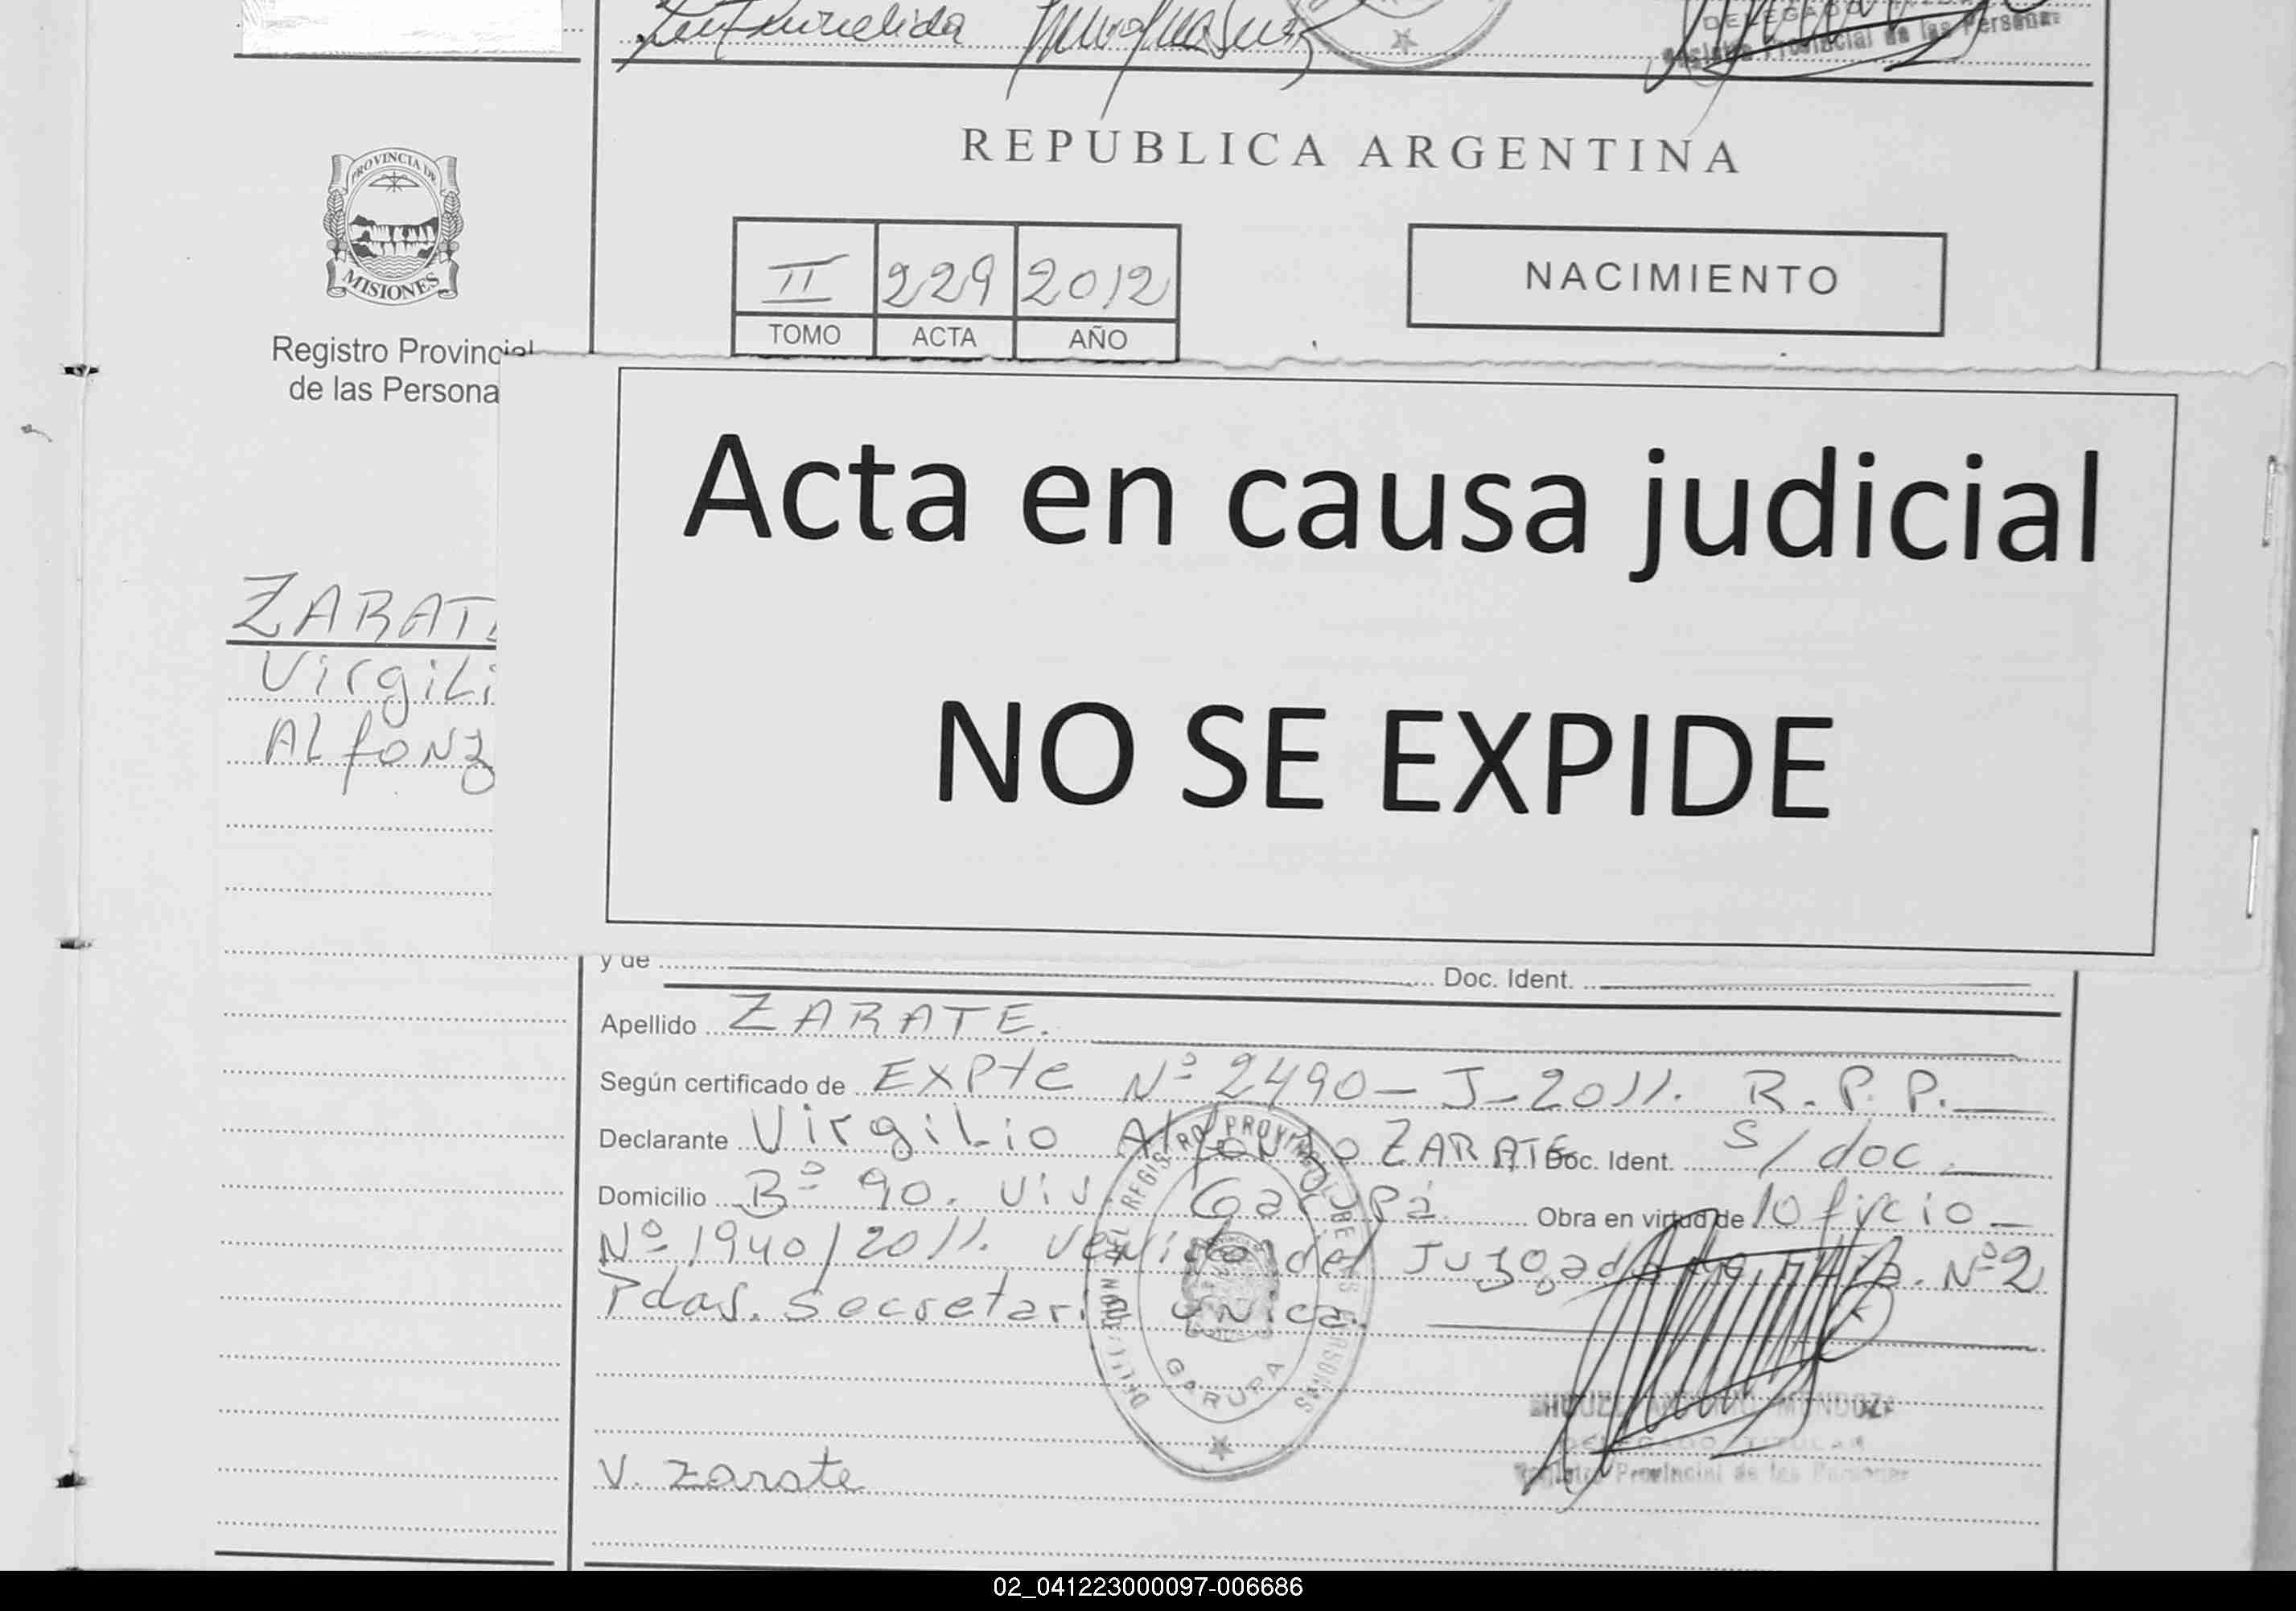 DELEGADO
Registro Provincial de las Personas
REPUBLICA ARGENTINA
PROVINCIA DE
MISIONES
II 229 2012
TOMO ACTA AÑO
NACIMIENTO
Registro Provincial
de las Persona
Acta en causa judicial
NO SE EXPIDE
ZARATE
Virgili
Alfonz
y de Doc. Ident.
Apellido ZARATE.
Según certificado de Expte Nº 2490-J-2011. R.P.P.
Declarante Virgilio Alfonzo ZARATE Doc. Ident. S/doc.
Domicilio Bº 90. Viv. Garupá Obra en virtud de /oficio
Nº 1940/2011. Venido del Juzgado Nº2
Pdas. secretaria unica.
REGISTRO PROVINCIAL DE LAS PERSONAS
GARUPA
MENDOZA
DELEGADO TITULAR
Registro Provincial de las Personas
V. Zarate
02_041223000097-006686